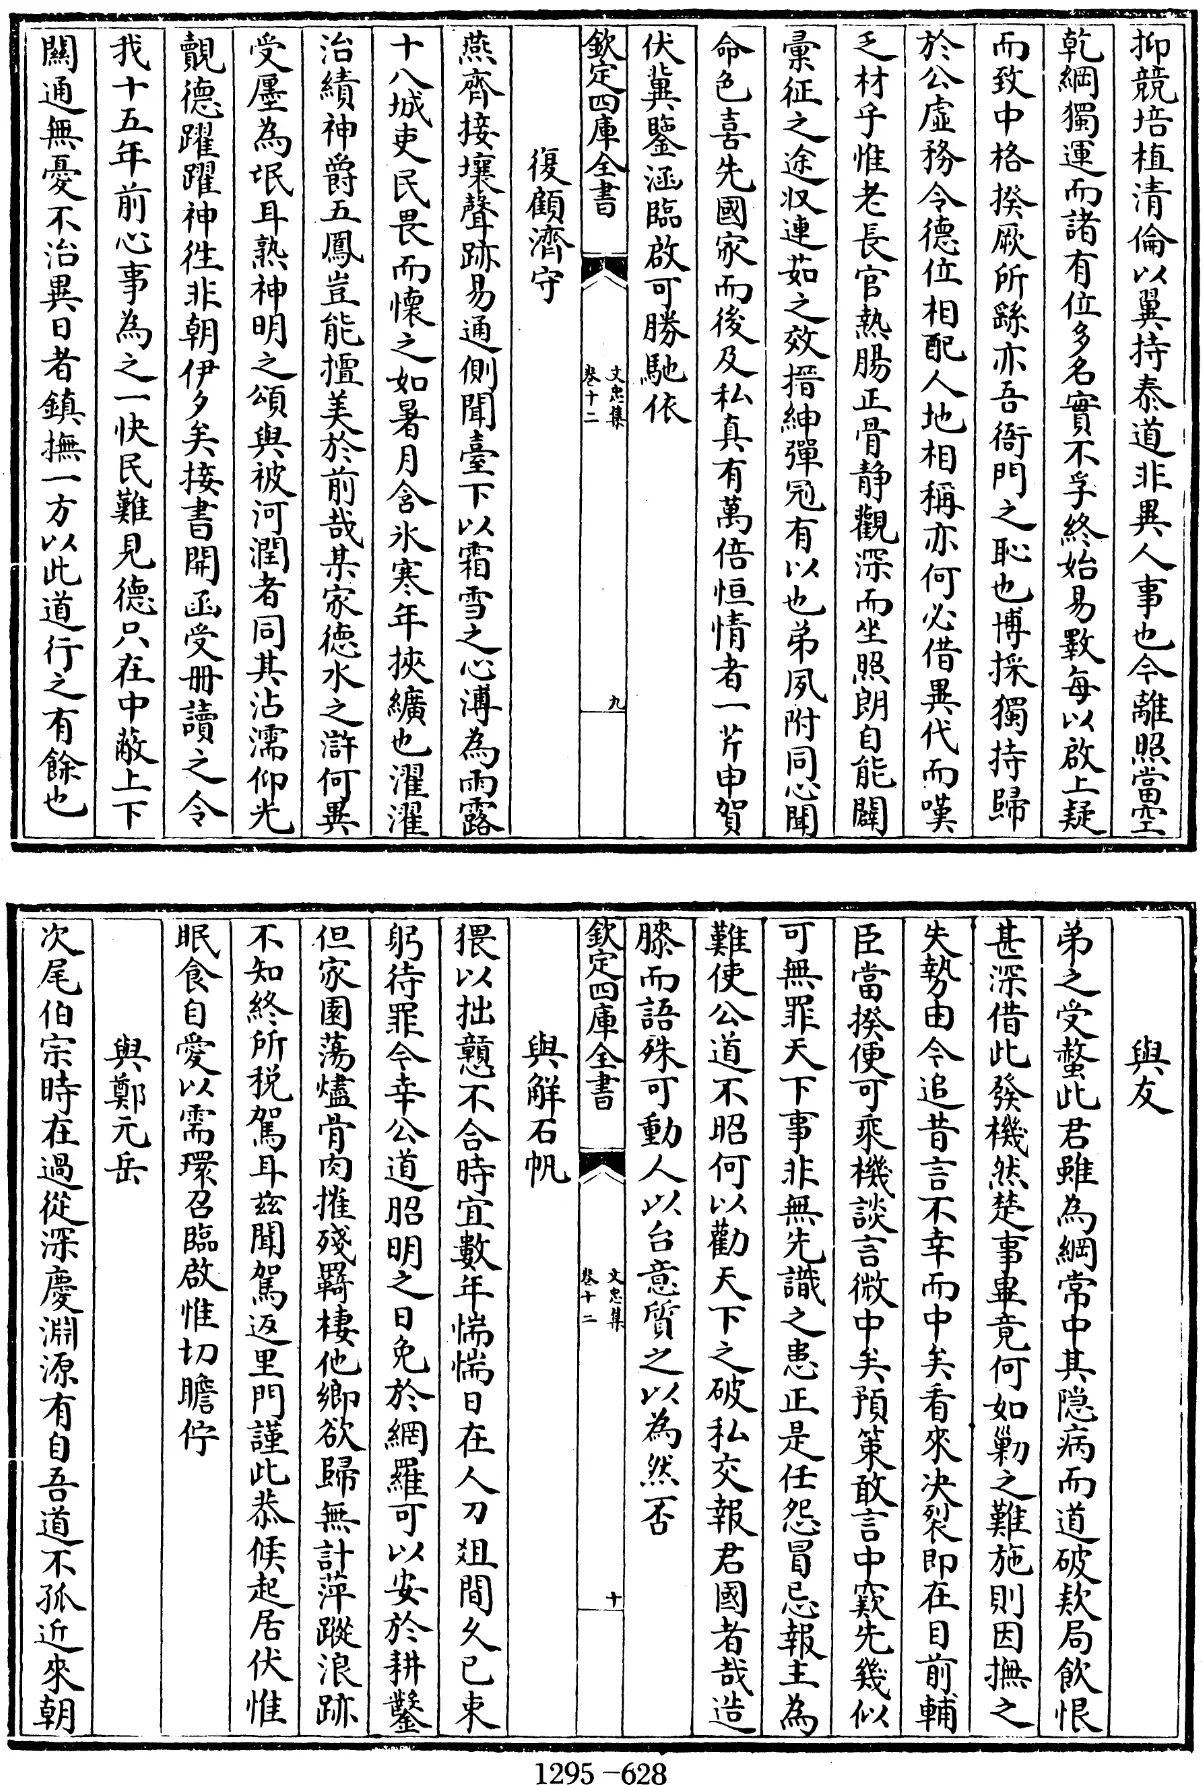 抑競培植清倫以翼持泰道非異人事也今離照當空
乾綱獨運而諸有位多名實不孚終始易斁每以啟上疑
而致中格揆厥所繇亦吾衙門之恥也博採獨持歸
於公虛務令德位相配人地相稱亦何必借異代而嘆
乏材乎惟老長官熱腸正骨靜觀深而坐照朗自能闢
彚征之途収連茹之效搢紳彈冠有以也弟夙附同心聞
命色喜先國家而後及私真有萬倍恒情者一芹申賀
伏冀鑒涵臨啟可勝馳依
欽定四庫全書
文忠集
卷十二
九
復顧濟守
燕齊接壤聲跡易通側聞臺下以霜雪之心溥為雨露
十八城吏民畏而懷之如暑月含氷寒年挾纊也濯濯
治績神爵五鳳豈能擅美於前哉某家德水之滸何異
受廛為氓耳熟神明之頌與被河潤者同其沾濡仰光
覿德躍躍神徃非朝伊夕矣接書開函受冊讀之令
我十五年前心事為之一快民難見德只在中蔽上下
關通無憂不治異日者鎮撫一方以此道行之有餘也
與友
弟之受螫此君雖為綱常中其隐病而道破欵局飲恨
甚深借此發機然楚事畢竟何如勦之難施則因撫之
失勢由今追昔言不幸而中矣看來决裂即在目前輔
臣當揆便可乘機談言微中矣預策敢言中窾先幾似
可無罪天下事非無先識之患正是任怨冒忌報主為
難使公道不昭何以勸天下之破私交報君國者哉造
膝而語殊可動人以台意質之以為然否
欽定四庫全書
文忠集
卷十二
十
與解石帆
猥以拙戇不合時宜數年惴惴日在人刀俎間久已束
躬待罪今幸公道昭明之日免於網羅可以安於耕鑿
但家園蕩燼骨肉摧殘羇棲他鄉欲歸無計萍蹤浪跡
不知終所税駕耳兹聞駕返里門謹此恭候起居伏惟
眠食自愛以需環召臨啟惟切瞻佇
與鄭元岳
次尾伯宗時在過從深慶淵源有自吾道不孤近來朝
1295-628